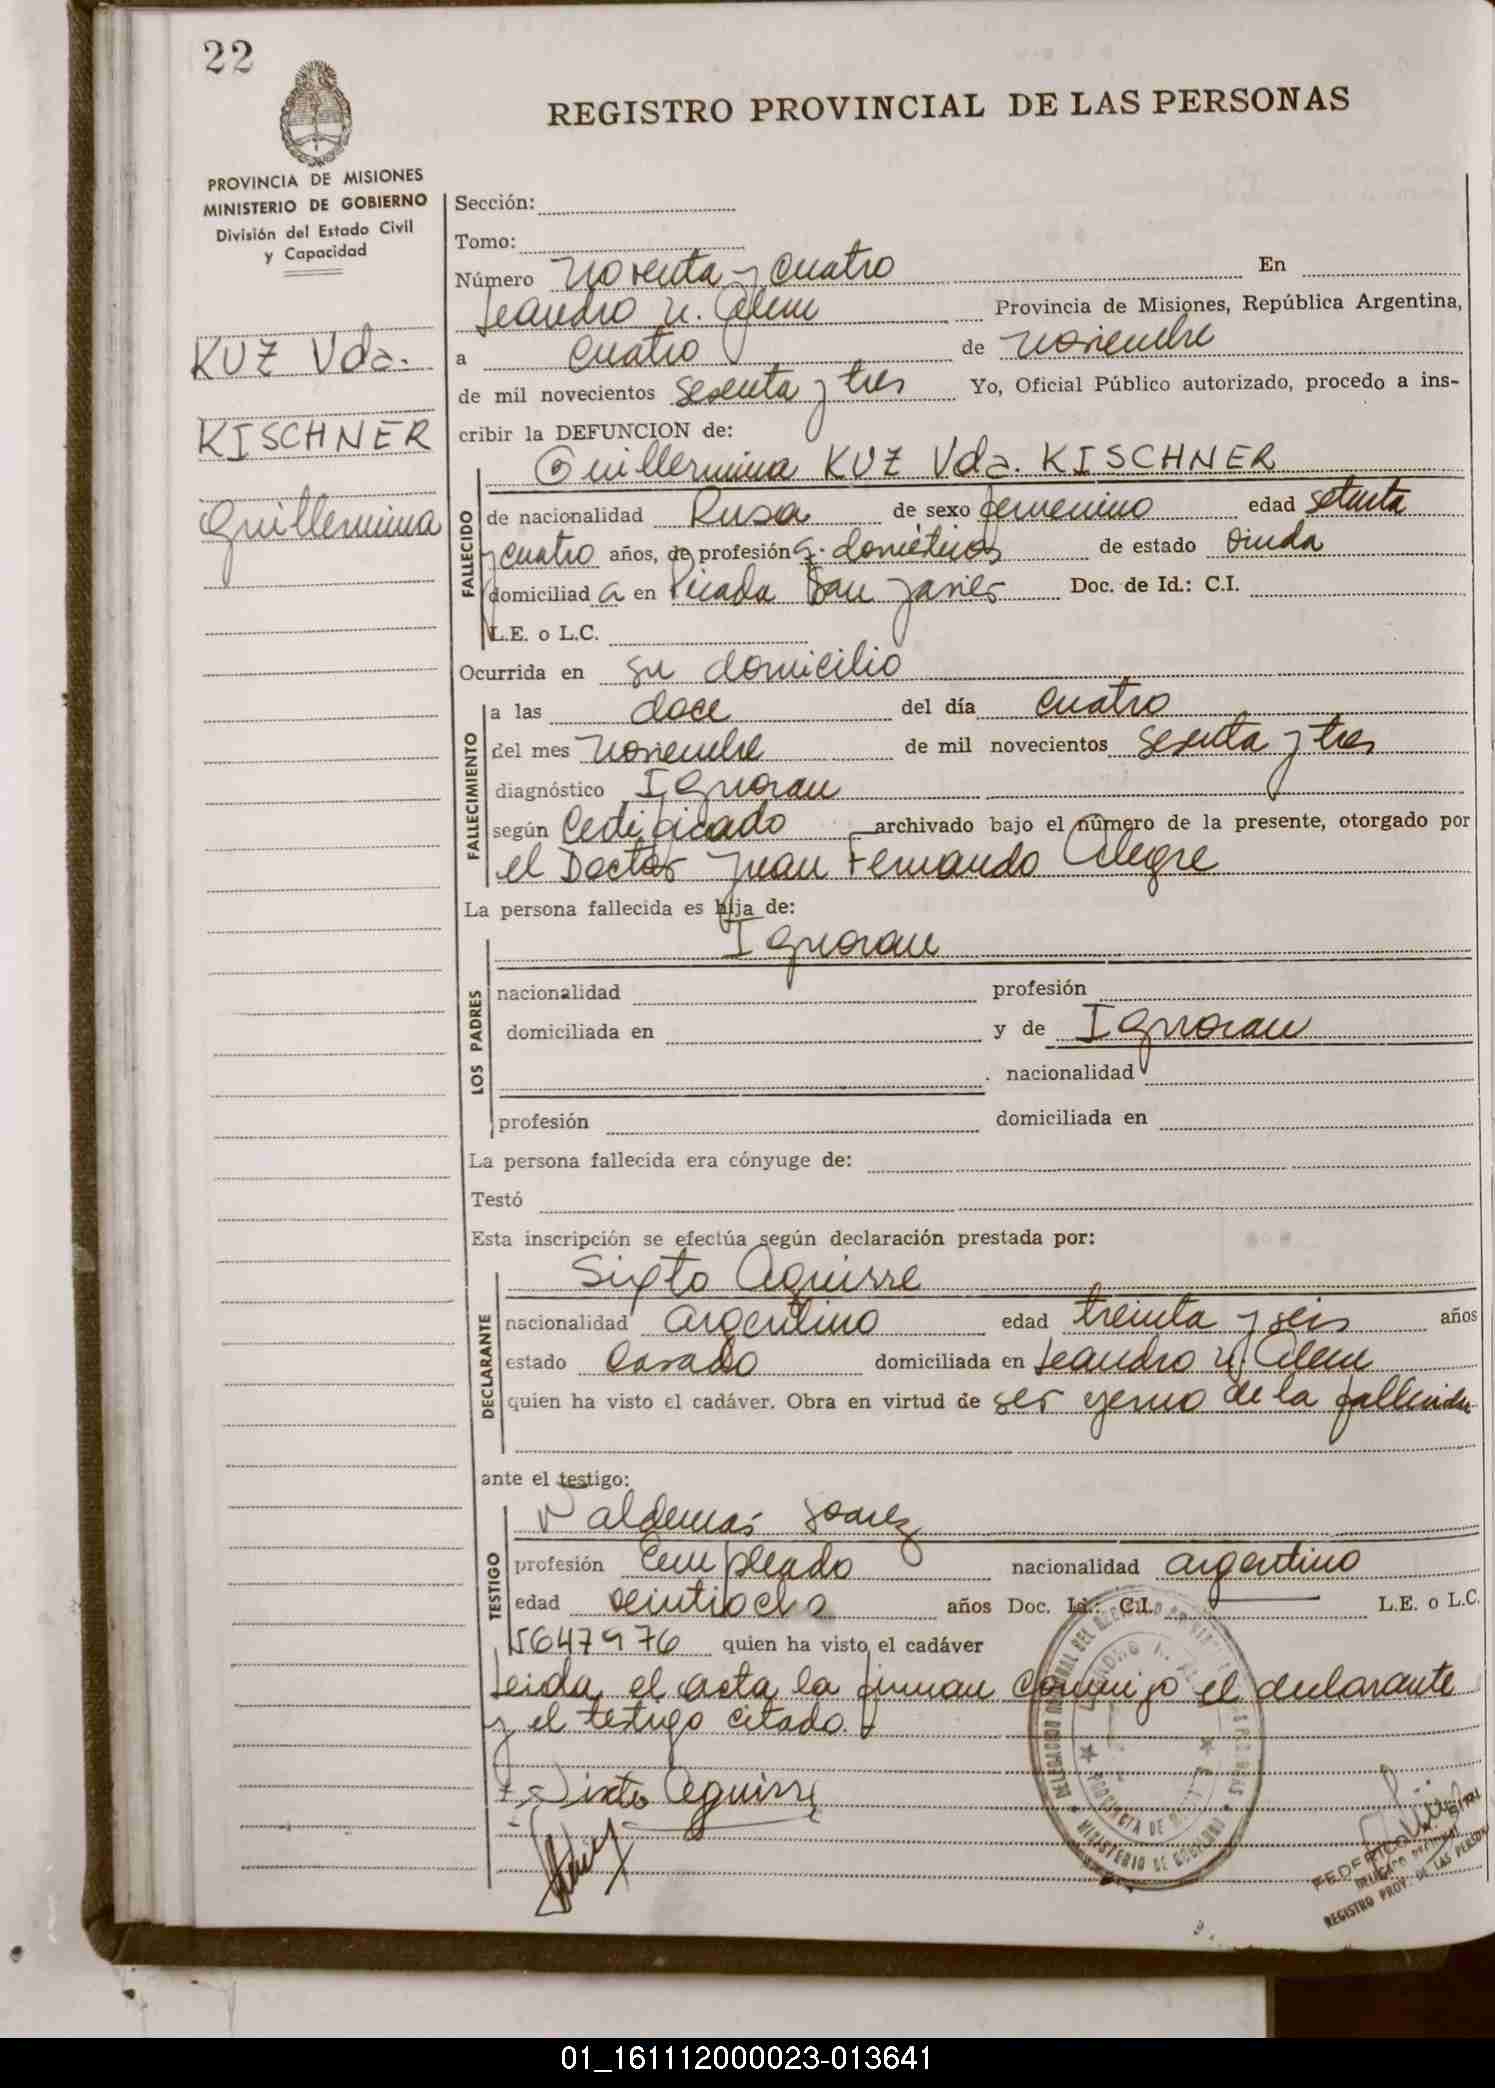 22
REGISTRO PROVINCIAL DE LAS PERSONAS
PROVINCIA DE MISIONES
MINISTERIO DE GOBIERNO
División del Estado Civil
y Capacidad
KUZ Vda.
KISCHNER
Guillermina
Sección:
Tomo:
Número Noventa y cuatro En
Leandro N. Alem Provincia de Misiones, República Argentina,
a cuatro de noviembre
de mil novecientos sesenta y tres Yo, Oficial Público autorizado, procedo a ins-
cribir la DEFUNCION de:
Guillermina KUZ Vda. KISCHNER
FALLECIDO
de nacionalidad Rusa de sexo femenino edad setenta
y cuatro años, de profesión q. domésticos de estado viuda
domiciliad a en Picada San Javier Doc. de Id.: C.I.
L.E. o L.C.
Ocurrida en su domicilio
FALLECIMIENTO
a las doce del día cuatro
del mes noviembre de mil novecientos sesenta y tres
diagnóstico Ignoran
según Cedificado archivado bajo el número de la presente, otorgado por
el Doctor Juan Fernando Alegre
La persona fallecida es hija de:
LOS PADRES
Ignoran
nacionalidad profesión
domiciliada en y de Ignoran
nacionalidad
profesión domiciliada en
La persona fallecida era cónyuge de:
Testó
Esta inscripción se efectúa según declaración prestada por:
DECLARANTE
Sixto Aguirre
nacionalidad argentino edad treinta y seis años
estado Casado domiciliada en Leandro N. Alem
quien ha visto el cadáver. Obra en virtud de ser yerno de la fallecida
ante el testigo:
TESTIGO
Valdemar Soarez
profesión Empleado nacionalidad argentino
edad veintiocho años Doc. Id.: C.I. L.E. o L.C.
5647976 quien ha visto el cadáver
Leida el acta la firman conmigo el declarante
y el testigo citado.
Sixto Aguirre
MINISTERIO DE GOBIERNO
PROVINCIA DE
FEDERICO
REGISTRO PROV. DE LAS PERSON
01_161112000023-013641